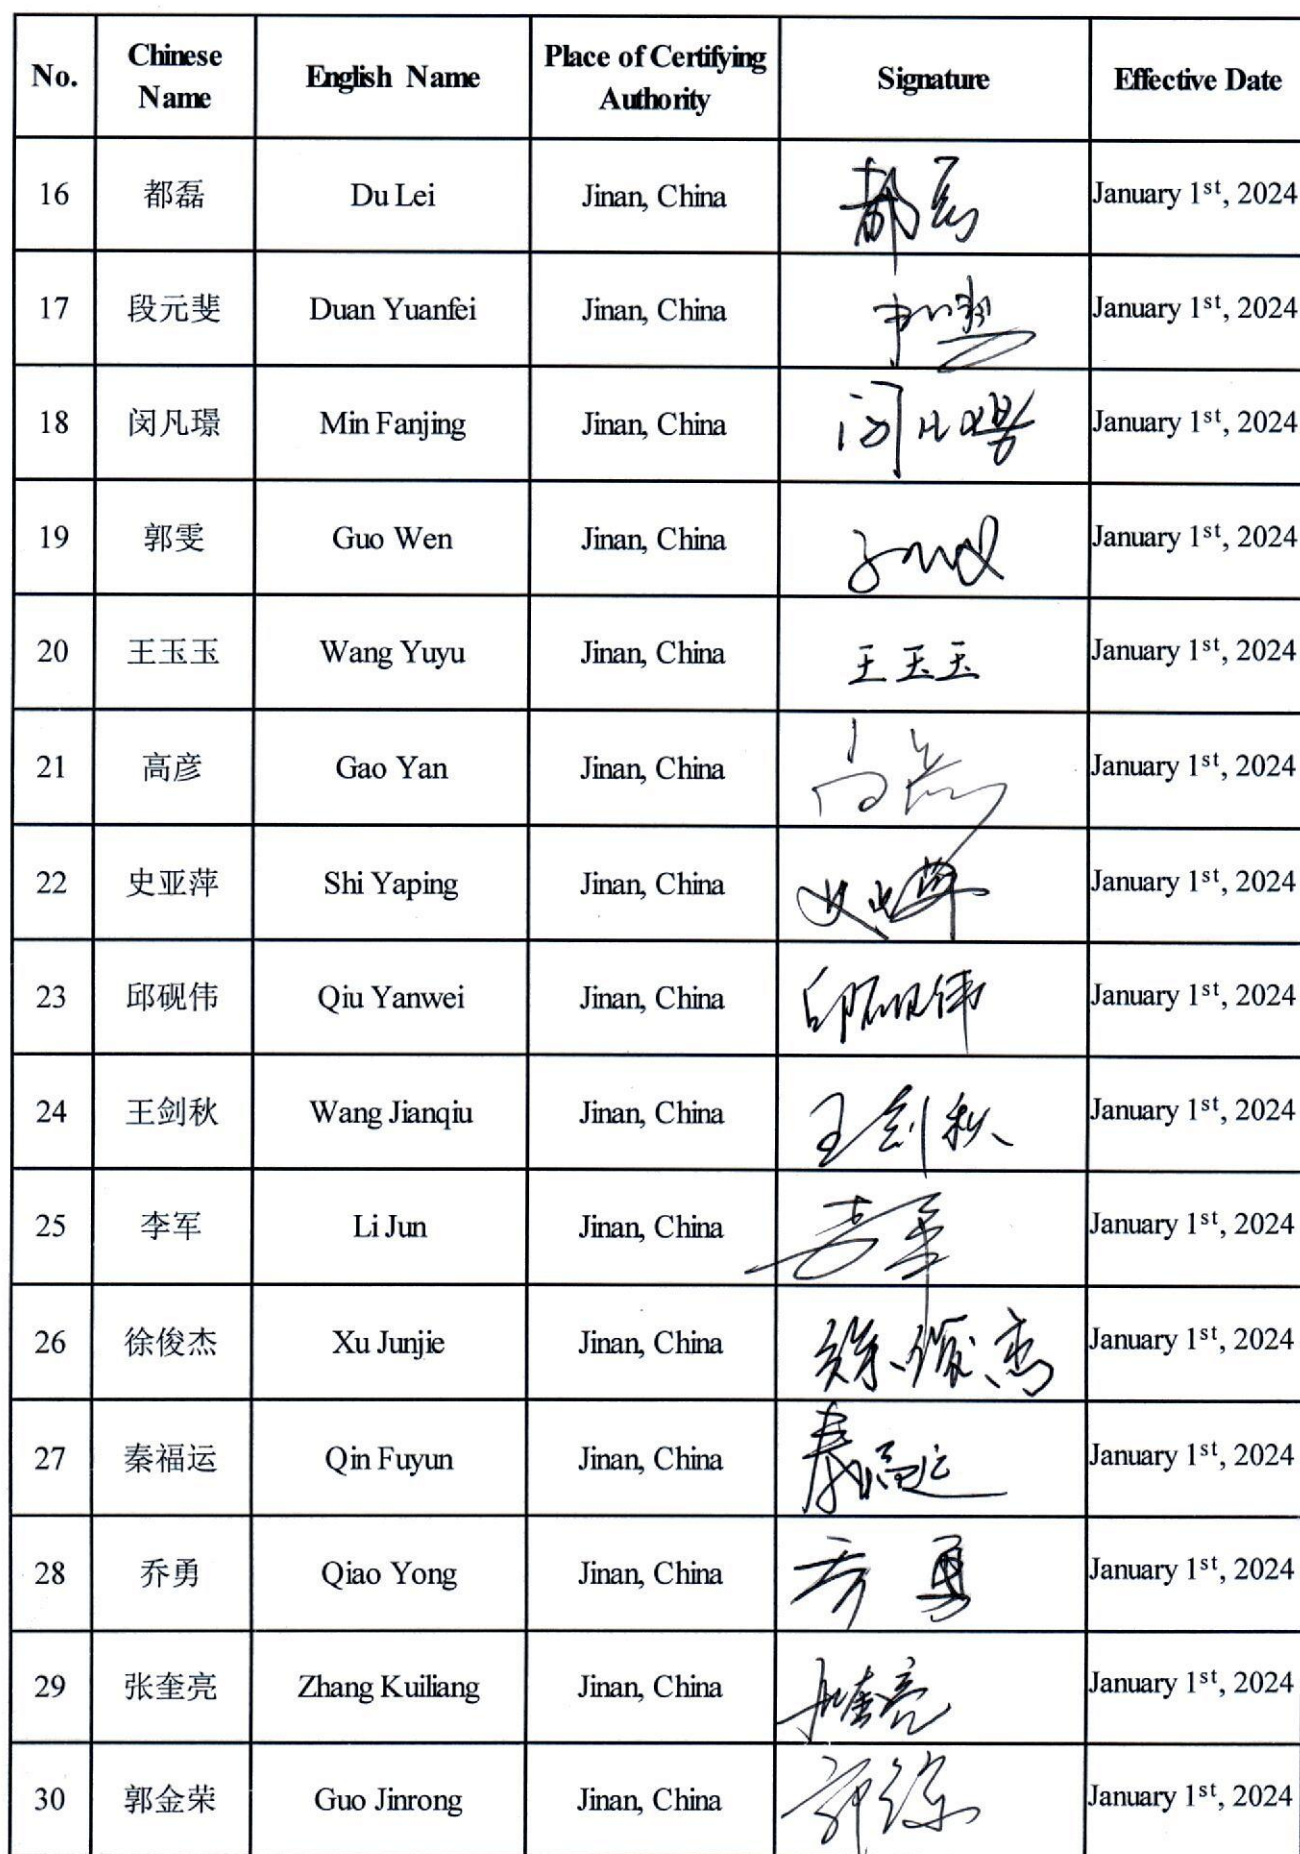 No. Chinese Name English Name Place of Certifying Authority Signature Effective Date
16 都磊 Du Lei Jinan, China 都磊 January 1st, 2024
17 段元斐 Duan Yuanfei Jinan, China January 1st, 2024
18 闵凡璟 Min Fanjing Jinan, China 闵凡璟 January 1st, 2024
19 郭雯 Guo Wen Jinan, China January 1st, 2024
20 王玉玉 Wang Yuyu Jinan, China 王玉玉 January 1st, 2024
21 高彦 Gao Yan Jinan, China 高彦 January 1st, 2024
22 史亚萍 Shi Yaping Jinan, China 史亚萍 January 1st, 2024
23 邱砚伟 Qiu Yanwei Jinan, China 邱砚伟 January 1st, 2024
24 王剑秋 Wang Jianqiu Jinan, China 王剑秋 January 1st, 2024
25 李军 Li Jun Jinan, China 李军 January 1st, 2024
26 徐俊杰 Xu Junjie Jinan, China 徐俊杰 January 1st, 2024
27 秦福运 Qin Fuyun Jinan, China 秦福运 January 1st, 2024
28 乔勇 Qiao Yong Jinan, China 乔勇 January 1st, 2024
29 张奎亮 Zhang Kuiliang Jinan, China 张奎亮 January 1st, 2024
30 郭金荣 Guo Jinrong Jinan, China January 1st, 2024